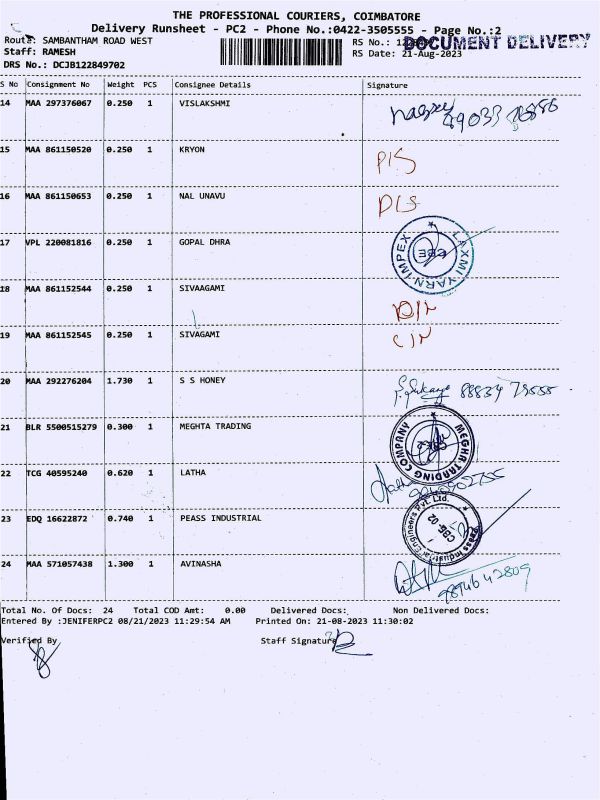 THE PROFESSIONAL COURIERS, COIMBATORE
Delivery Runsheet - PC2 - Phone No.:0422-3505555 - Page No.:2
Route: SAMBANTHAM ROAD WEST
RS No.:
DOCUMENT DELIVERY
Staff: RAMESH
RS Date: 21-Aug-2023
DRS No.: DCJB122849702
S No Consignment No Weight PCS Consignee Details Signature
14 MAA 297376067 0.250 1 VISLAKSHMI
15 MAA 861150520 0.250 1 KRYON
16 MAA 861150653 0.250 1 NAL UNAVU
17 VPL 220081816 0.250 1 GOPAL DHRA
LAXMI YARN IMPEX
CBE
18 MAA 861152544 0.250 1 SIVAAGAMI
19 MAA 861152545 0.250 1 SIVAGAMI
20 MAA 292276204 1.730 1 S S HONEY
21 BLR 5500515279 0.300 1 MEGHTA TRADING
MEGHA TRADING COMPANY
22 TCG 40595240 0.620 1 LATHA
23 EDQ 16622872 0.740 1 PEASS INDUSTRIAL
Peass Industrial Engineers Pvt. Ltd.
CBE-02
24 MAA 571057438 1.300 1 AVINASHA
Total No. Of Docs: 24 Total COD Amt: 0.00 Delivered Docs: Non Delivered Docs:
Entered By :JENIFERPC2 08/21/2023 11:29:54 AM Printed On: 21-08-2023 11:30:02
Verified By
Staff Signature